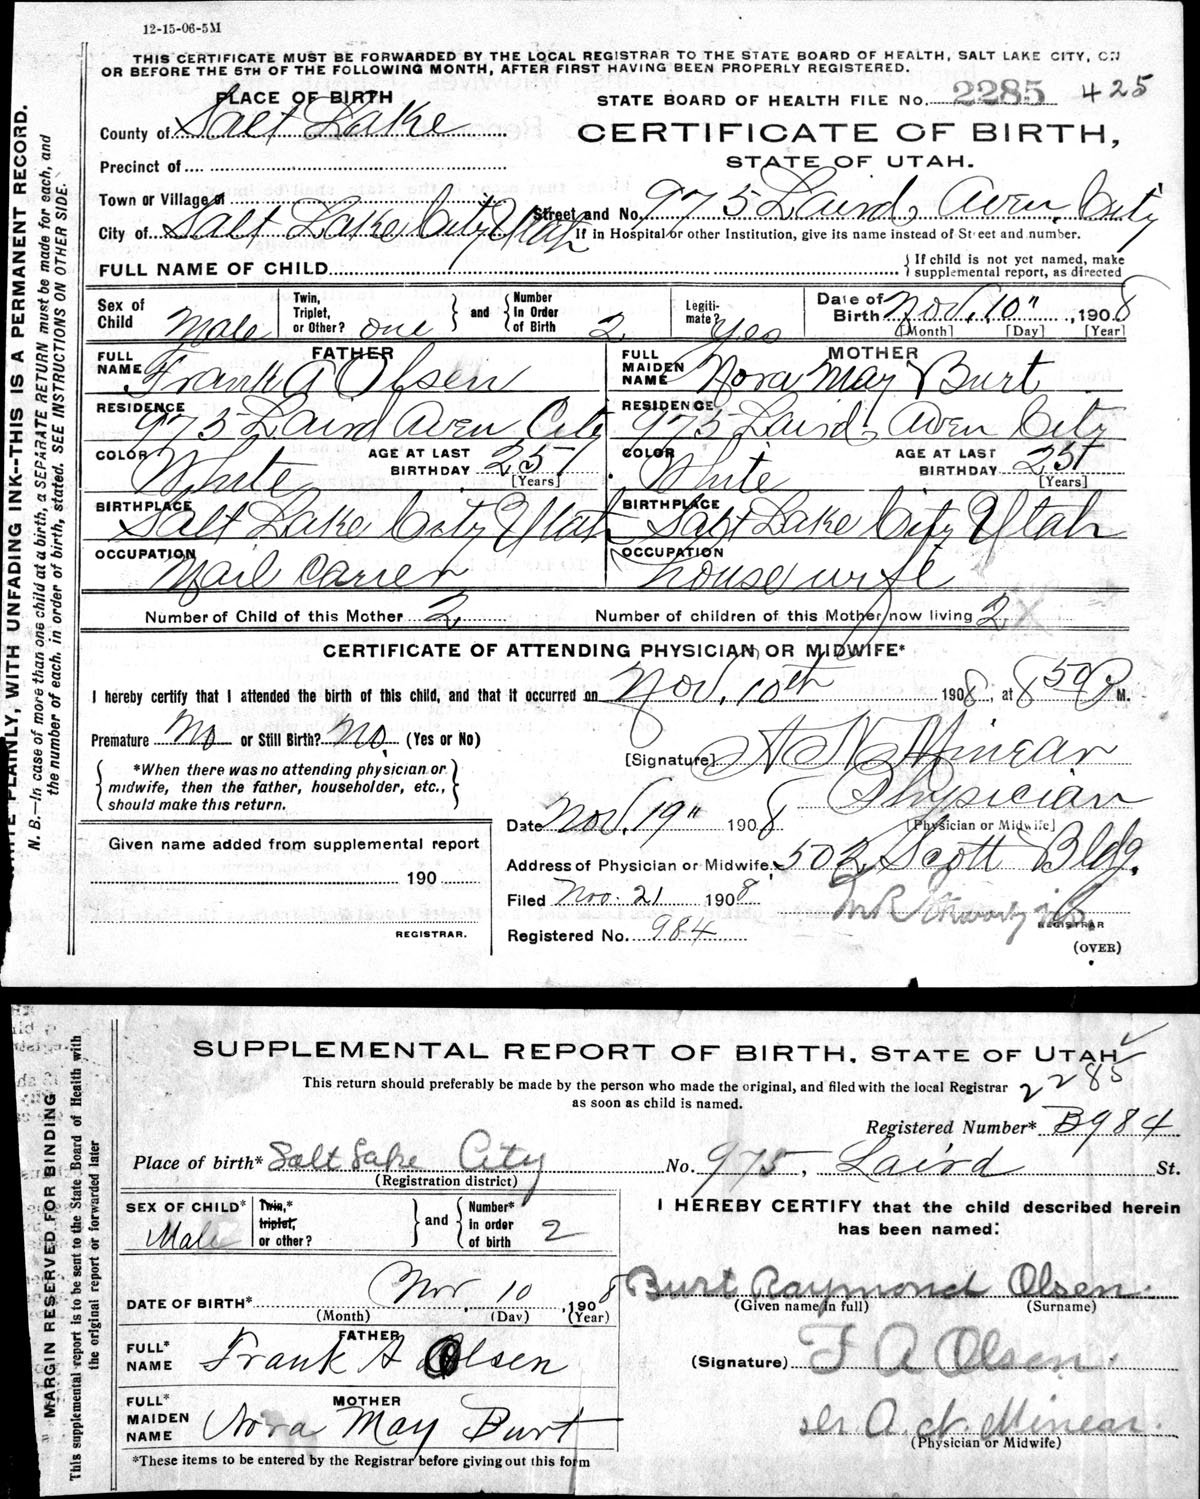 12-15-06-5M
THIS CERTIFICATE MUST BE FORWARDED BY THE LOCAL REGISTRAR TO THE STATE BOARD OF HEALTH, SALT LAKE CITY, ON
OR BEFORE THE 5TH OF THE FOLLOWING MONTH, AFTER FIRST HAVING BEEN PROPERLY REGISTERED.
PLACE OF BIRTH
STATE BOARD OF HEALTH FILE No. 2285 425
County of Salt Lake
CERTIFICATE OF BIRTH,
STATE OF UTAH.
Precinct of
Town or Village of
Street and No. 975 Laird, Aven. City
City of Salt Lake City Utah
If in Hospital or other Institution, give its name instead of Street and number.
FULL NAME OF CHILD
If child is not yet named, make
supplemental report, as directed
Sex of Child Male
Twin, Triplet, or Other? one
and
Number In Order of Birth 2
Legitimate? Yes
Date of Birth Nov. 10" , 1908
[Month] [Day] [Year]
FATHER
FULL NAME Frank A Olsen
MOTHER
FULL MAIDEN NAME Nora May Burt
RESIDENCE 975 Laird Aven City
RESIDENCE 975 Laird, Aven City
COLOR White
AGE AT LAST BIRTHDAY 25
[Years]
COLOR White
AGE AT LAST BIRTHDAY 25
[Years]
BIRTHPLACE Salt Lake City Utah
BIRTHPLACE Salt Lake City Utah
OCCUPATION Mail Carrer
OCCUPATION house wife
Number of Child of this Mother 2
Number of children of this Mother now living 2
CERTIFICATE OF ATTENDING PHYSICIAN OR MIDWIFE*
I hereby certify that I attended the birth of this child, and that it occurred on Nov. 10th 1908, at 8 50 P M.
Premature No or Still Birth? No. (Yes or No)
[Signature] A N Minear
*When there was no attending physician or
midwife, then the father, householder, etc.,
should make this return.
Physician
[Physician or Midwife]
Date Nov. 19" 1908
Given name added from supplemental report
190
REGISTRAR.
Address of Physician or Midwife. 502 Scott Bldg.
Filed Nov. 21 1908
REGISTRAR
Registered No. 984
(OVER)
WRITE PLAINLY, WITH UNFADING INK--THIS IS A PERMANENT RECORD.
N. B.—In case of more than one child at a birth, a SEPARATE RETURN must be made for each, and
the number of each, in order of birth, stated. SEE INSTRUCTIONS ON OTHER SIDE.
SUPPLEMENTAL REPORT OF BIRTH, STATE OF UTAH
This return should preferably be made by the person who made the original, and filed with the local Registrar
as soon as child is named.
2285
Registered Number* B984
Place of birth* Salt Lake City No. 975, Laird St.
(Registration district)
SEX OF CHILD* Male
Twin,* triplet, or other?
and
Number* in order of birth 2
I HEREBY CERTIFY that the child described herein
has been named:
DATE OF BIRTH* Nov. 10 , 1908
(Month) (Day) (Year)
Burt Raymond Olsen
(Given name in full) (Surname)
FATHER
FULL* NAME Frank A Olsen
(Signature) F A Olsen.
MOTHER
FULL* MAIDEN NAME Nora May Burt
A. N. Minear.
(Physician or Midwife)
*These items to be entered by the Registrar before giving out this form
MARGIN RESERVED FOR BINDING
This supplemental report is to be sent to the State Board of Health with
the original report or forwarded later